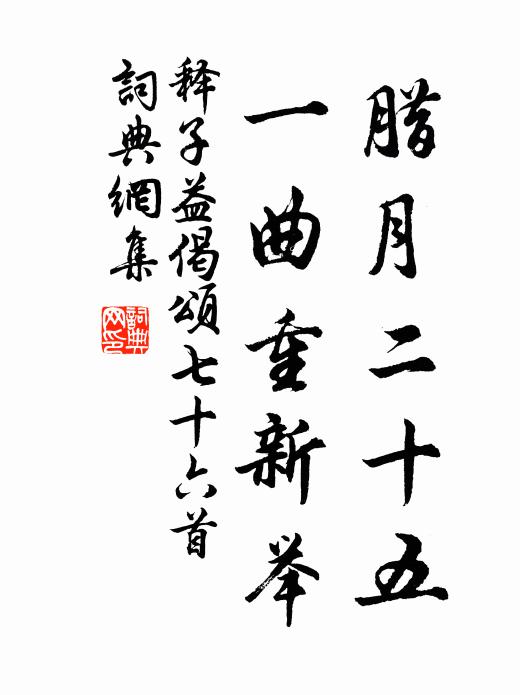 腊月二十五
一曲重新举
释子益偈颂七十六首
詞典網集
詞典
网印